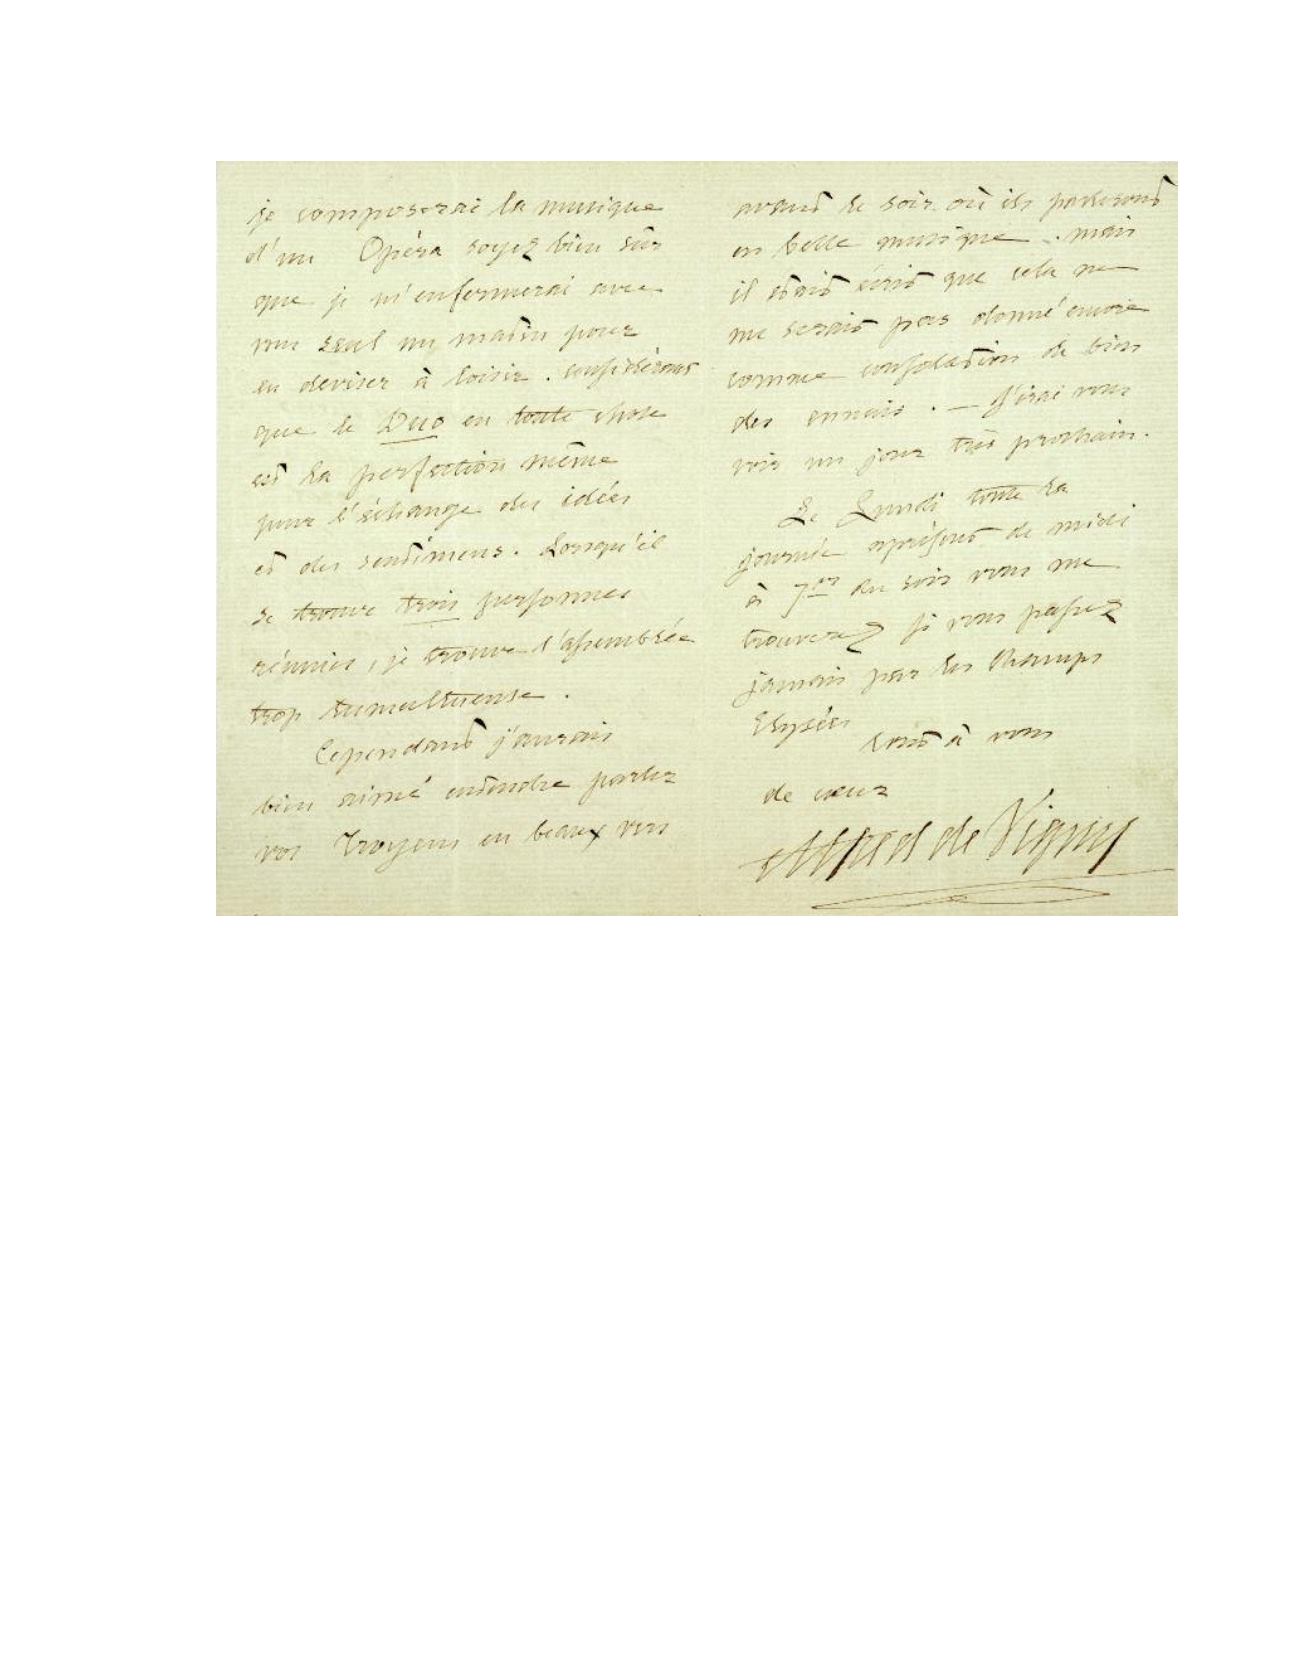 je composerai la musique
d'un Opéra soyez bien sûr
que je m'enfermerai avec
vous seul un matin pour
en deviser à loisir. Considérons
que le Duo en toute chose
est la perfection même
pour l'échange des idées
et des sentimens. Lorsqu'il
se trouve trois personnes
réunies, je trouve l'assemblée
trop tumultueuse.
Cependant j'aurais
bien aimé entendre parler
vos Troyens en beaux vers
avant le soir où ils parleront
en belle musique. mais
il était écrit que cela ne
me serait pas donné encore
comme consolation de bien
des ennuis. — J'irai vous
voir un jour très prochain.
Le Lundi toute la
journée à présent de midi
à 7 du soir vous me
trouverez si vous passez
jamais par les Champs
Elysées
tout à vous
de cœur
Alfred de Vigny